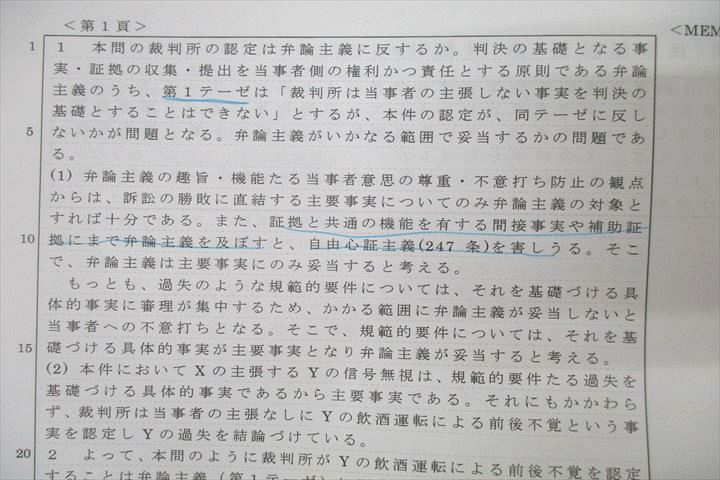 <第1頁>
<MEM
1 1 本問の裁判所の認定は弁論主義に反するか。判決の基礎となる事
実・証拠の収集・提出を当事者側の権利かつ責任とする原則である弁論
主義のうち、第1テーゼは「裁判所は当事者の主張しない事実を判決の
基礎とすることはできない」とするが、本件の認定が、同テーゼに反し
5 ないかが問題となる。弁論主義がいかなる範囲で妥当するかの問題であ
る。
(1) 弁論主義の趣旨・機能たる当事者意思の尊重・不意打ち防止の観点
からは、訴訟の勝敗に直結する主要事実についてのみ弁論主義の対象と
すれば十分である。また、証拠と共通の機能を有する間接事実や補助証
10 拠にまで弁論主義を及ぼすと、自由心証主義(247 条)を害しうる。そこ
で、弁論主義は主要事実にのみ妥当すると考える。
もっとも、過失のような規範的要件については、それを基礎づける具
体的事実に審理が集中するため、かかる範囲に弁論主義が妥当しないと
当事者への不意打ちとなる。そこで、規範的要件については、それを基
15 礎づける具体的事実が主要事実となり弁論主義が妥当すると考える。
(2) 本件においてXの主張するYの信号無視は、規範的要件たる過失を
基礎づける具体的事実であるから主要事実である。それにもかかわら
ず、裁判所は当事者の主張なしにYの飲酒運転による前後不覚という事
実を認定しYの過失を結論づけている。
20 2 よって、本問のように裁判所がYの飲酒運転による前後不覚を認定
することは弁論主義(第1テーゼ)に反